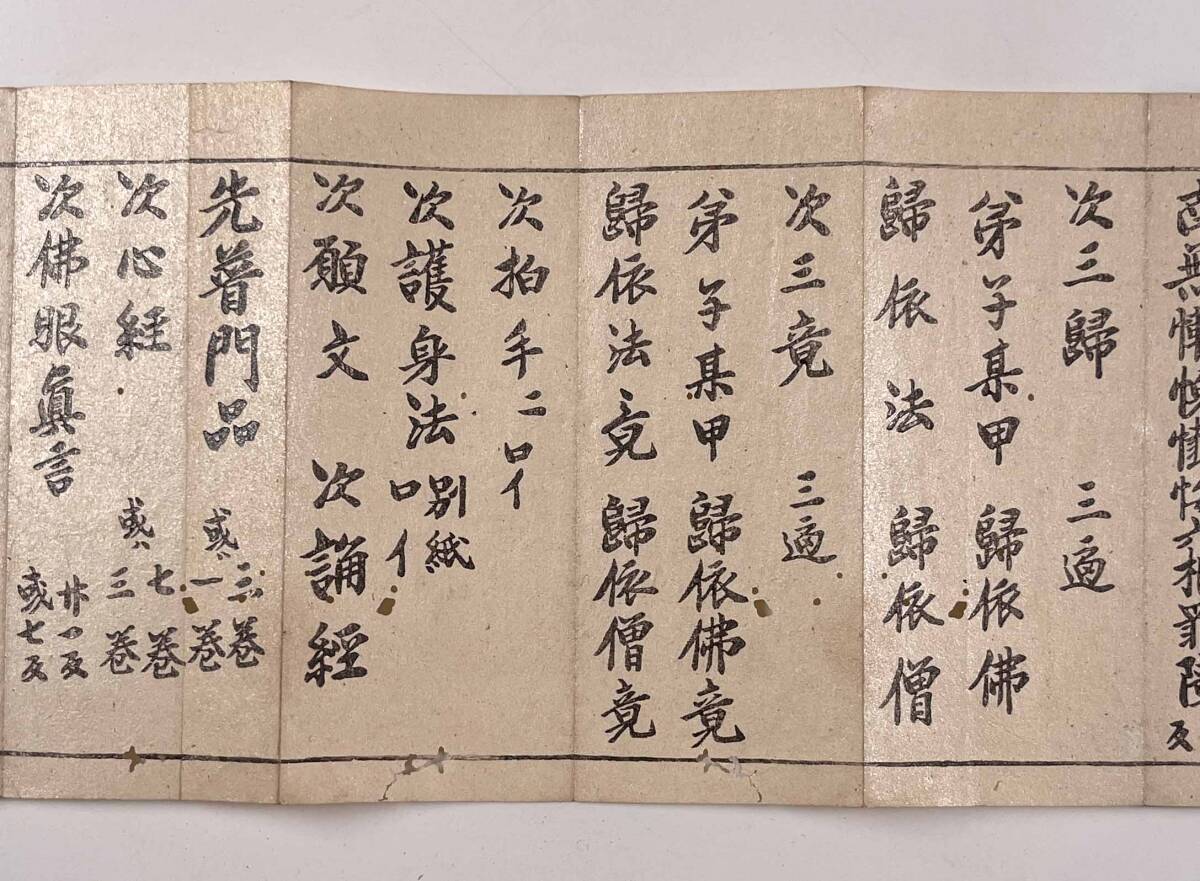 次三歸 三遍
弟子某甲 歸依佛
歸依法 歸依僧
次三竟 三遍
弟子某甲 歸依佛竟
歸依法竟 歸依僧竟
次拍手二口イ
次護身法 別紙
口イ
次願文 次誦經
先普門品 三巻
或ハ一巻
次心経 七巻
或ハ三巻
次佛眼眞言 廿一反
或七反